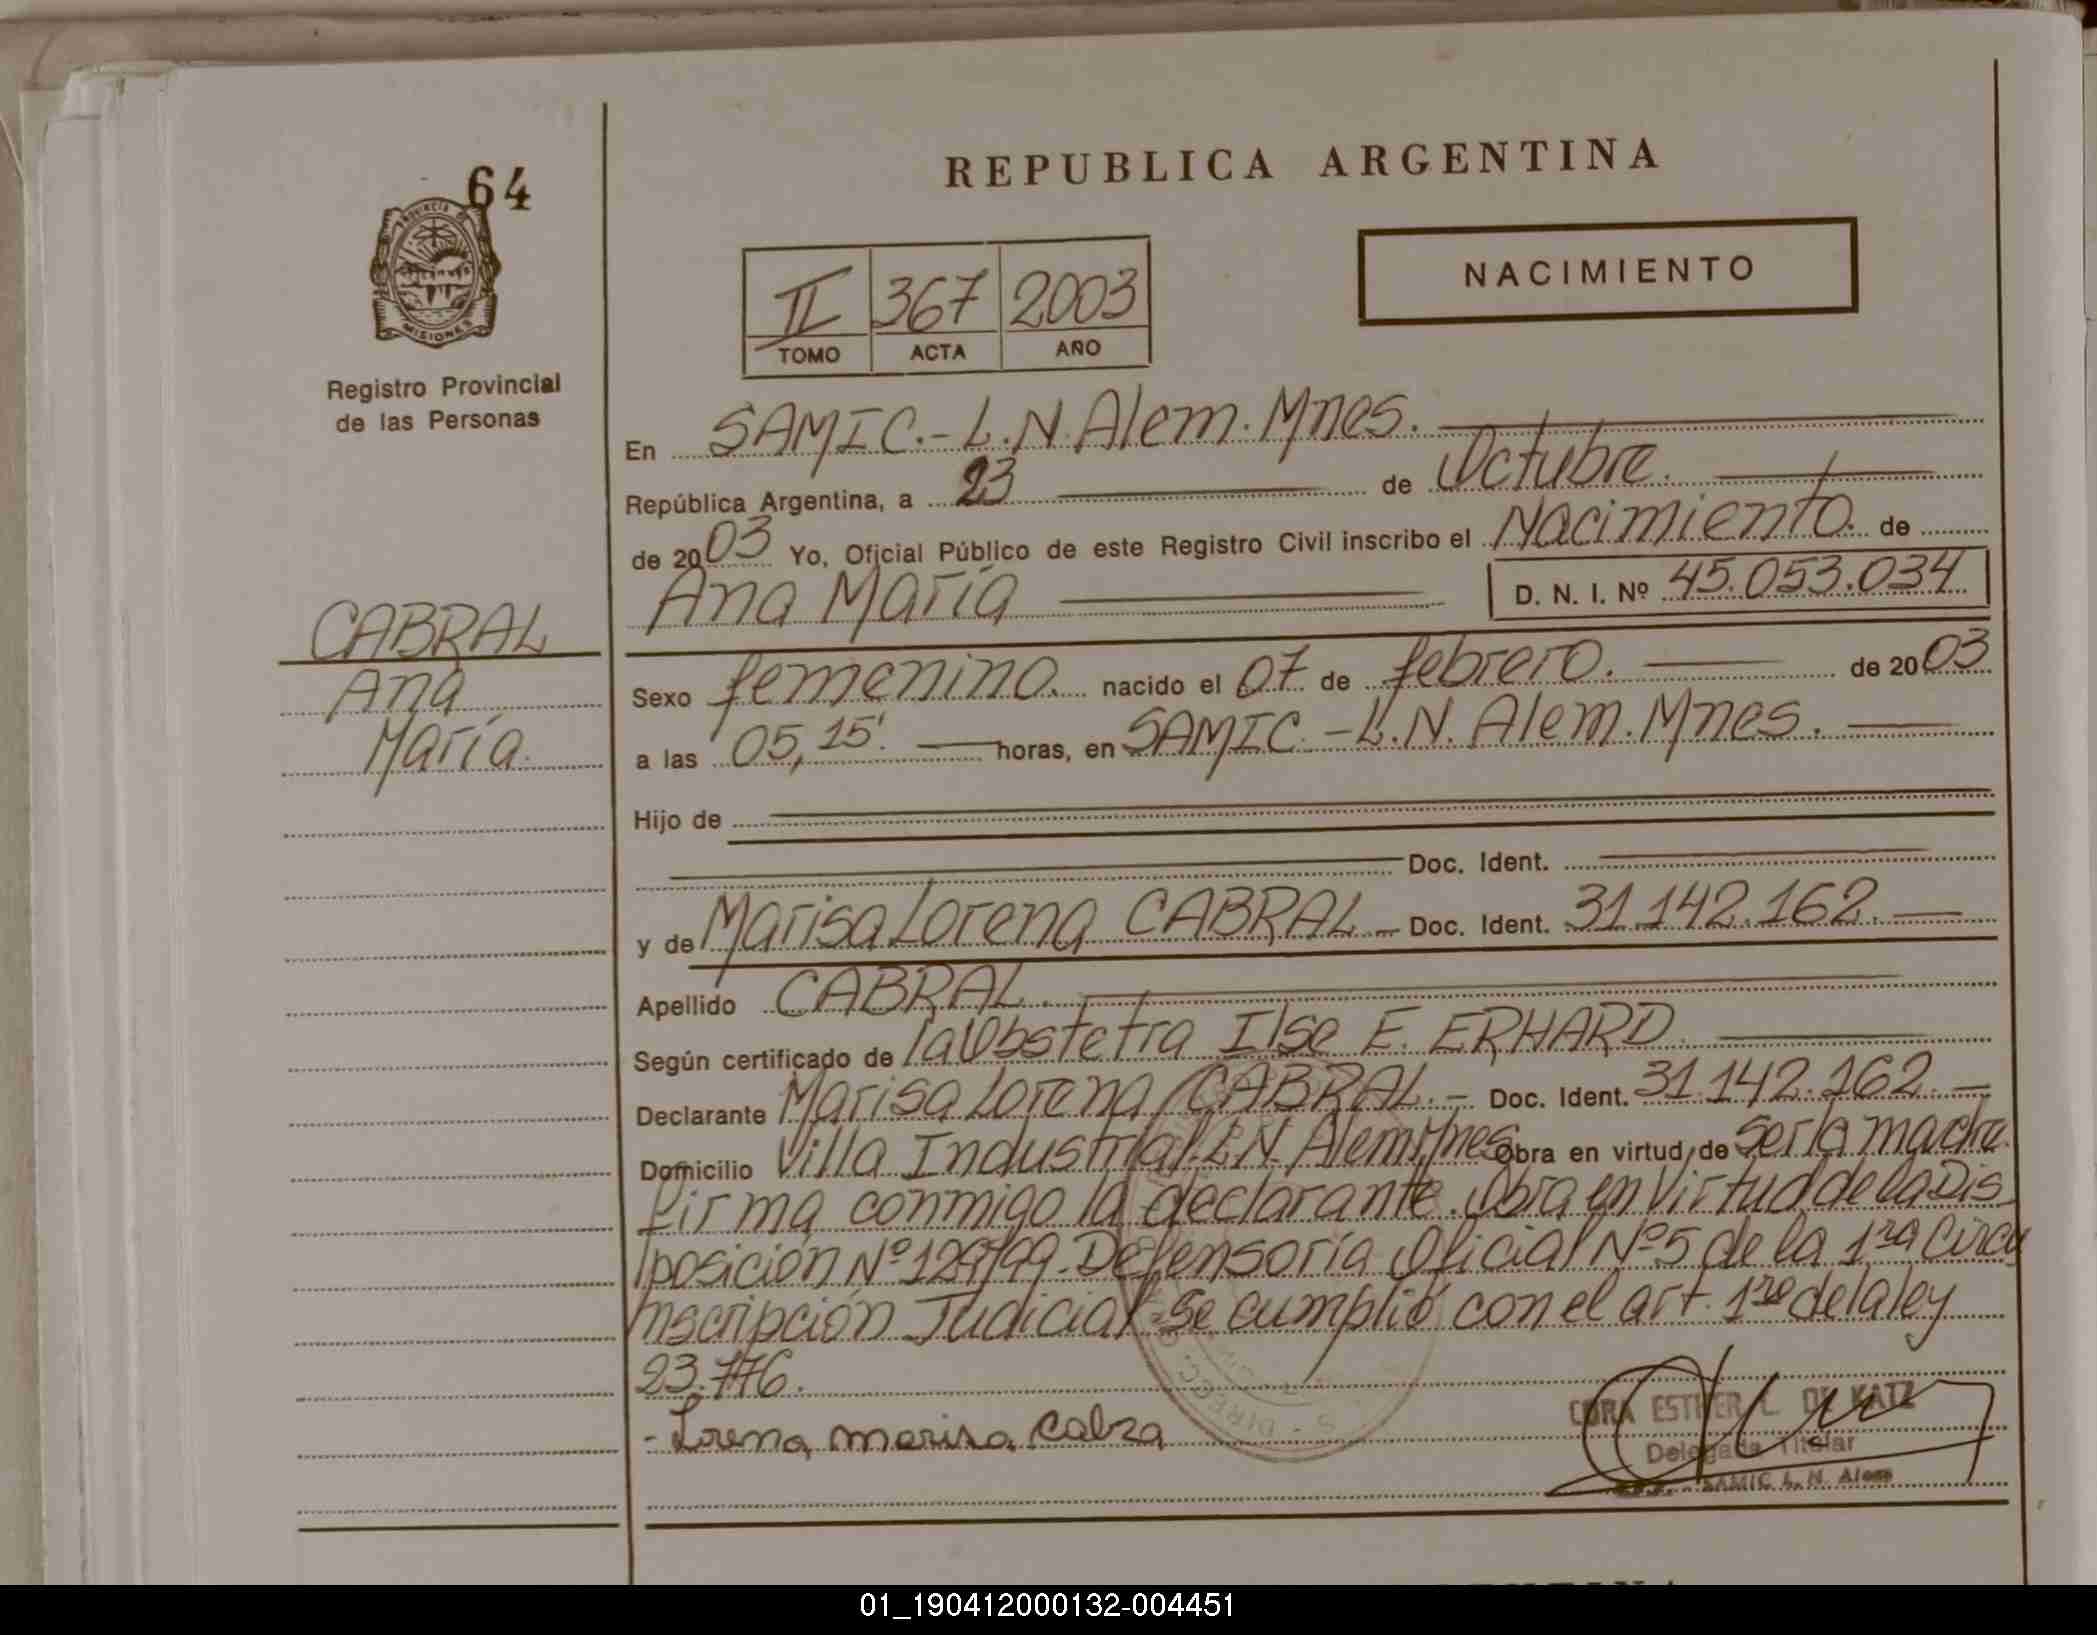 64
PROVINCIA DE
MISIONES
Registro Provincial
de las Personas
REPUBLICA ARGENTINA
NACIMIENTO
II 367 2003
TOMO ACTA AÑO
En SAMIC.- L.N. Alem. Mnes.
República Argentina, a 23 de Octubre.
de 2003 Yo, Oficial Público de este Registro Civil inscribo el Nacimiento. de
Ana María D. N. I. Nº 45.053.034
CABRAL
Ana
María.
Sexo femenino. nacido el 07 de febrero. de 2003
a las 05,15'. horas, en SAMIC. - L.N. Alem. Mnes.
Hijo de
Doc. Ident.
y de Marisa Lorena CABRAL - Doc. Ident. 31.142.162.
Apellido CABRAL.
Según certificado de la Obstetra Ilse E. ERHARD.
Declarante Marisa Lorena CABRAL. - Doc. Ident. 31.142.162. -
Domicilio Villa Industrial. L.N. Alem. Mnes. Obra en virtud de ser la madre.
firma conmigo la declarante. Obra en Virtud de la Dis
posición Nº 129/99. Defensoría Oficial Nº 5 de la 1ra Circu
nscripción Judicial. Se cumplió con el art. 1ro de la ley
23.776.
- Lorena marisa Cabra
ESTHER L. DE KATZ
Delegada Titular
SAMIC L. N. Alem
DIRECC
01_190412000132-004451